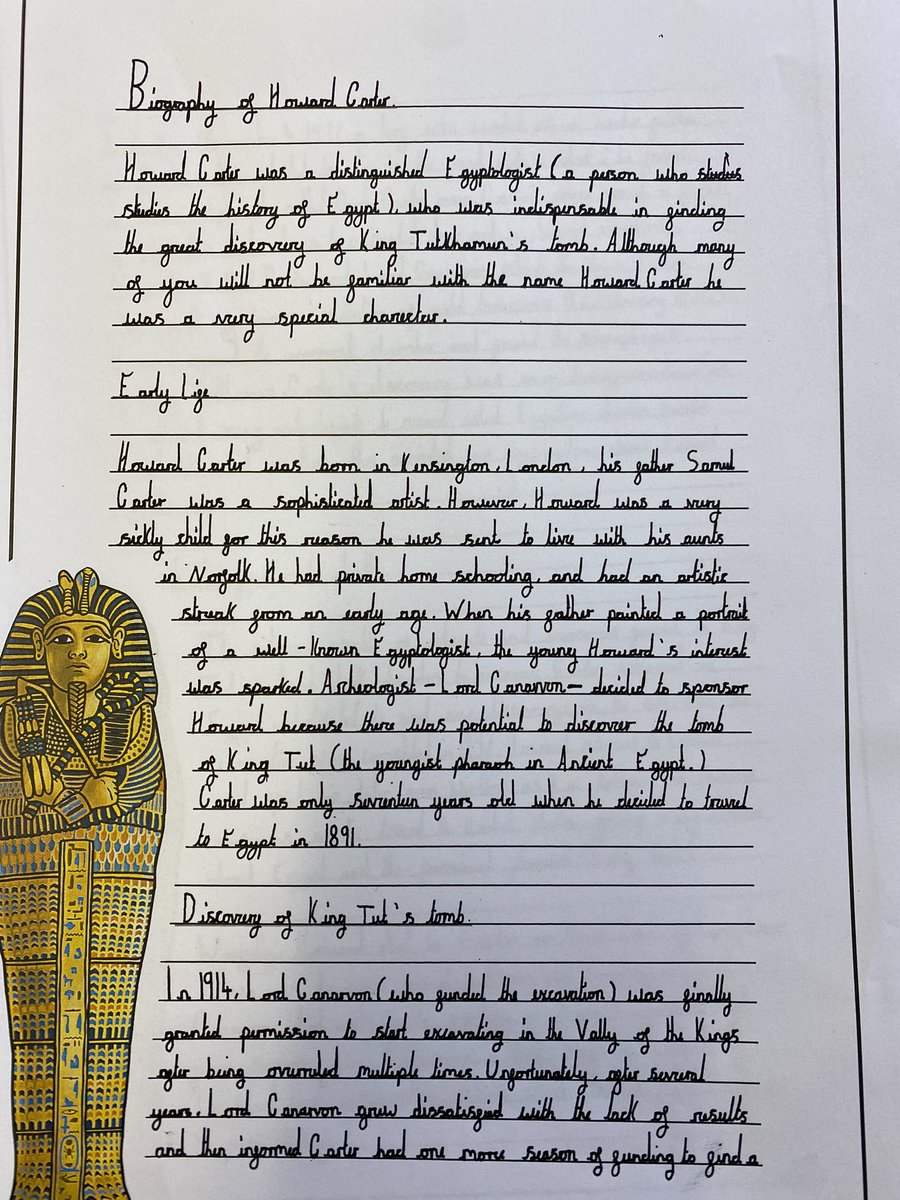 Biography of Howard Carter.
Howard Carter was a distinguished Egyptologist (a person who studies
studies the history of Egypt), who was indispensable in finding
the great discovery of King Tutkhamun's tomb. Although many
of you will not be familiar with the name Howard Carter he
was a very special charecter.
Early life
Howard Carter was born in Kensington, London, his father Samuel
Carter was a sophisticated artist. However, Howard was a very
sickly child for this reason he was sent to live with his aunts
in Norfolk. He had private home schooling, and had an artistic
streak from an early age. When his father painted a portrait
of a well-known Egyptologist, the young Howard's interest
was sparked. Archeologist - Lord Canarvon - decided to sponsor
Howard because there was potential to discover the tomb
of King Tut (the youngist pharaoh in Ancient Egypt.)
Carter was only seventeen years old when he decided to travel
to Egypt in 1891.
Discovery of King Tut's tomb.
In 1914, Lord Canarvon (who funded the excavation) was finally
granted permission to start excavating in the Vally of the Kings
after being overruled multiple times. Unfortunately, after several
years, Lord Canarvon grew dissatisfeid with the lack of results
and then informed Carter had one more season of funding to find a